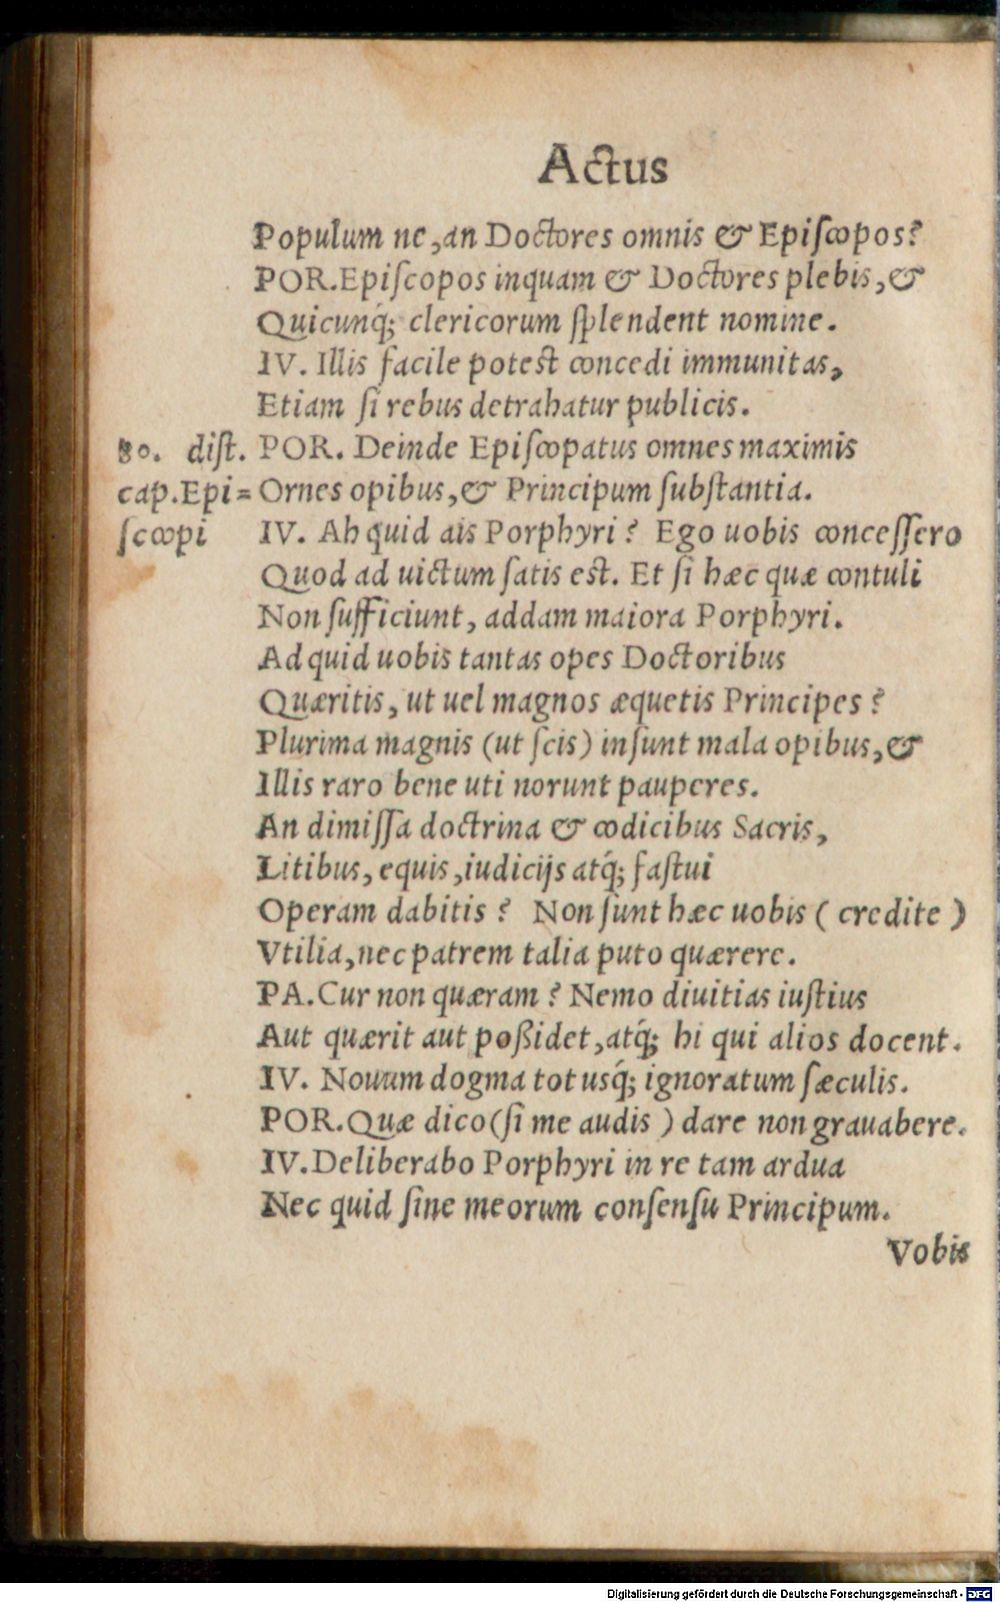 Actus
Populum ne,an Doctores omnis & Epiſcopos?
POR.Epiſcopos inquam & Doctores plebis,&
Quicunq́; clericorum ſplendent nomine.
IV. Illis facile potest concedi immunitas,
Etiam ſi rebus detrahatur publicis.
80. diſt. POR. Deinde Epiſcopatus omnes maximis
cap.Epi= Ornes opibus,& Principum ſubſtantia.
ſcopi IV. Ah quid ais Porphyri? Ego uobis conceſſero
Quod ad uictum ſatis est. Et ſi hæc quæ contuli
Non ſufficiunt, addam maiora Porphyri.
Ad quid uobis tantas opes Doctoribus
Quæritis, ut uel magnos æquetis Principes?
Plurima magnis (ut ſcis) inſunt mala opibus,&
Illis raro bene uti norunt pauperes.
An dimiſſa doctrina & codicibus Sacris,
Litibus, equis,iudicijs atq́; faſtui
Operam dabitis? Non ſunt hæc uobis ( credite )
Vtilia,nec patrem talia puto quærere.
PA.Cur non quæram? Nemo diuitias iuſtius
Aut quærit aut poßidet,atq́; hi qui alios docent.
IV. Nouum dogma tot usq́; ignoratum ſæculis.
POR.Quæ dico(ſi me audis ) dare non grauabere.
IV.Deliberabo Porphyri in re tam ardua
Nec quid ſine meorum conſenſu Principum.
Vobis
Digitalisierung gefördert durch die Deutsche Forschungsgemeinschaft - DFG